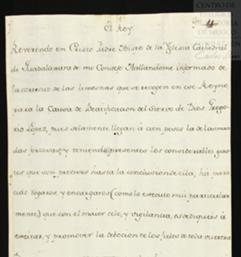 El Rey
Reverendo en Cristo Padre Obispo de la Yglesia Cathedral
de Guadalaxara de mi Consejo. Hallandome informado de
la cortedad de las limosnas que se recogen en ese Reyno
para la Causa de Beatificacion del Siervo de Dios Grego
rio Lopez, pues solamente llegan à cien pesos la de la
y teniendo presentes los considerables gas
tos que son precisos hasta la conclusion de ella, hè pare
cido rogaros, y encargaros (como lo executo muy particular
mente) que con el maior celo, y vigilancia, os dediqueis à
excitar, y promover la debocion de los fieles de toda vuestra